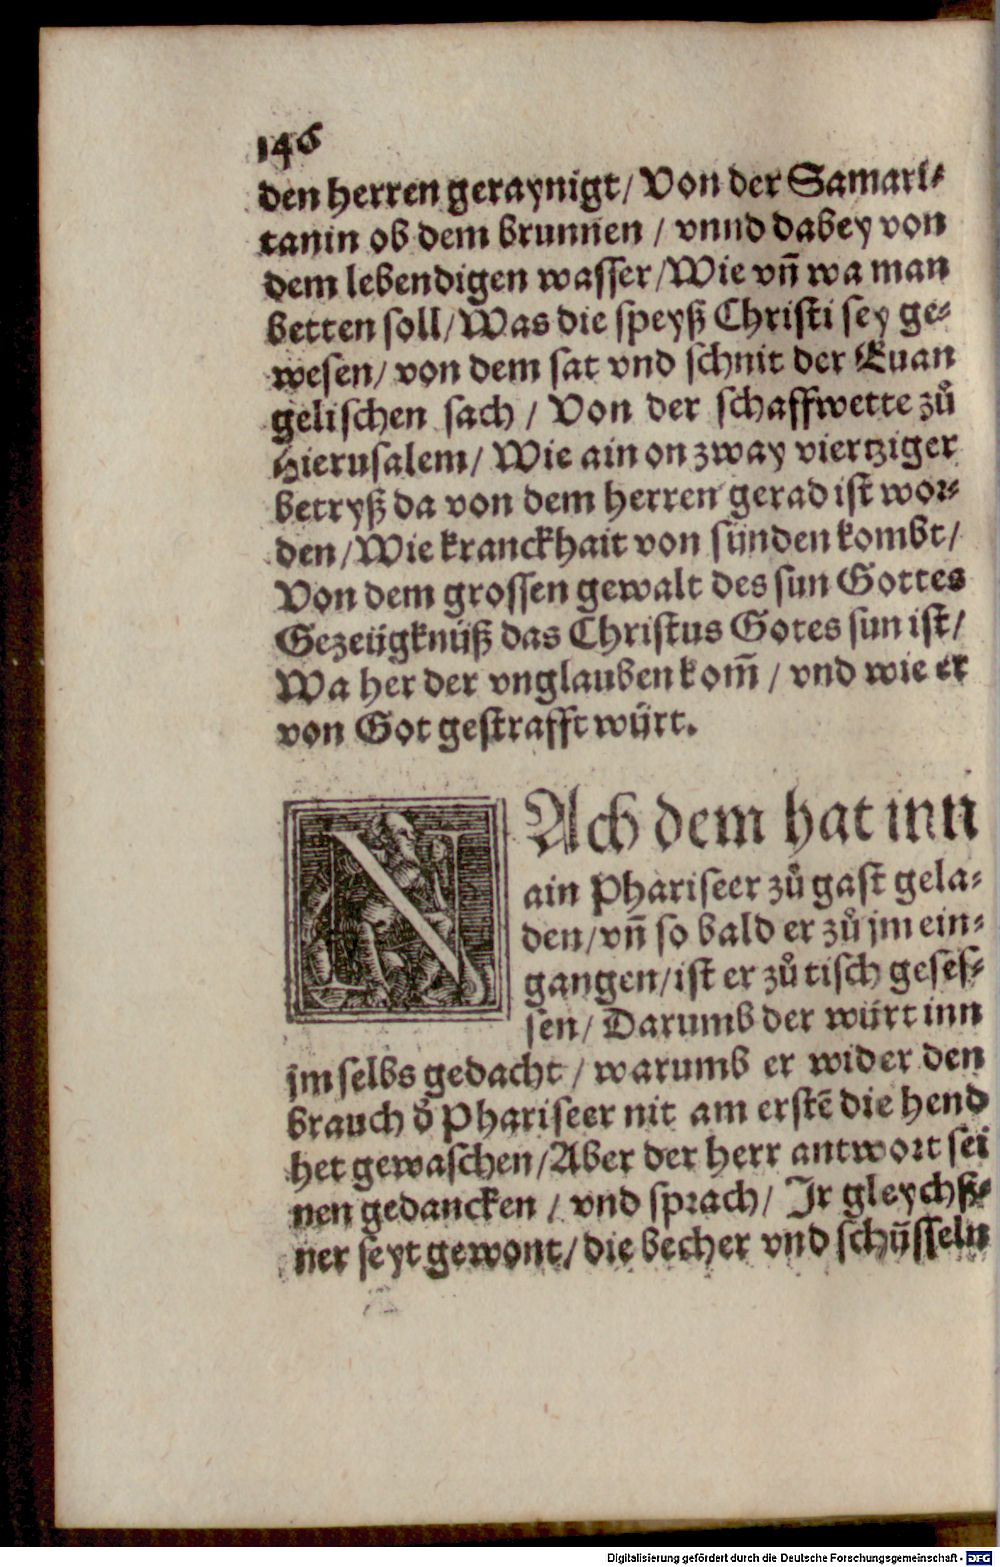 146
den herren geraynigt/ Von der Samari⸗
tanin ob dem brunnen / vnnd dabey von
dem lebendigen wasser/Wie vñ wa man
betten soll/ Was die speyß Christi sey ge⸗
wesen/ von dem sat vnd schnit der Euan
gelischen sach / Von der schaffwette zů
Hierusalem/ Wie ain on zway viertziger
betryß da von dem herren gerad ist wor⸗
den/Wie kranckhait von sünden kombt/
Von dem grossen gewalt des sun Gottes
Gezeügknüß das Christus Gotes sun ist/
Wa her der vnglauben kom̃ / vnd wie er
von Got gestrafft würt.
NAch dem hat inn
ain Phariseer zů gast gela⸗
den/vñ so bald er zů jm ein⸗
gangen/ist er zů tisch geses⸗
sen/ Darumb der würt inn
jm selbs gedacht / warumb er wider den
brauch d̕ Phariseer nit am erstē die hend
het gewaschen/Aber der herr antwort sei
nen gedancken / vnd sprach/ Jr gleychß⸗
ner seyt gewont/ die becher vnd schüsseln
Digitalisierung gefördert durch die Deutsche Forschungsgemeinschaft - DFG